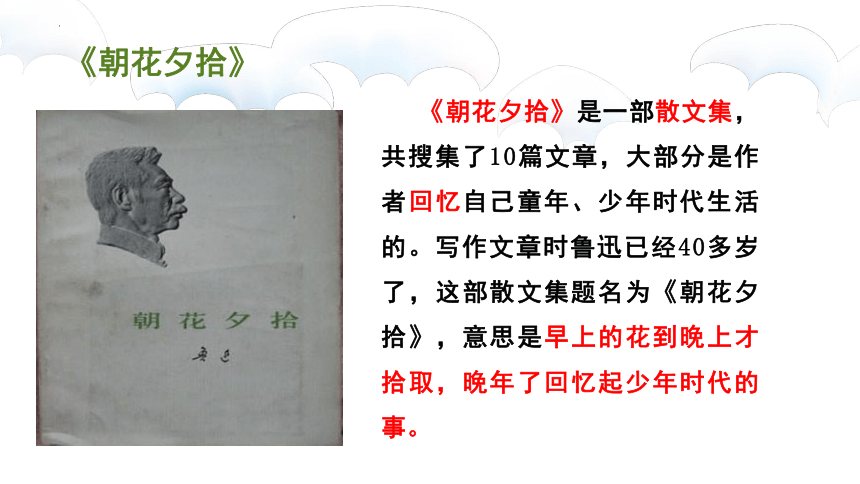 《朝花夕拾》
《朝花夕拾》是一部散文集，
共搜集了10篇文章，大部分是作
者回忆自己童年、少年时代生活
的。写作文章时鲁迅已经40多岁
了，这部散文集题名为《朝花夕
拾》，意思是早上的花到晚上才
拾取，晚年了回忆起少年时代的
事。
朝花夕拾
鲁迅